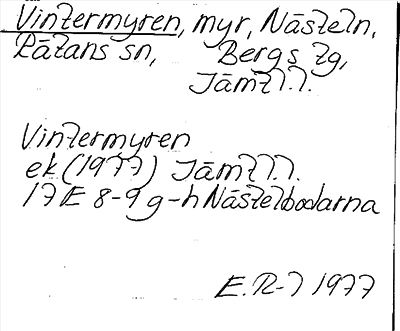 Vintermyren, myr, Nästeln,
Rätans sn, Bergs tg,
Jämtl.l.
Vintermyren
ek (1977) Jämtl.l.
17E 8-9 g-h Nästelbodarna
E.R-l 1977